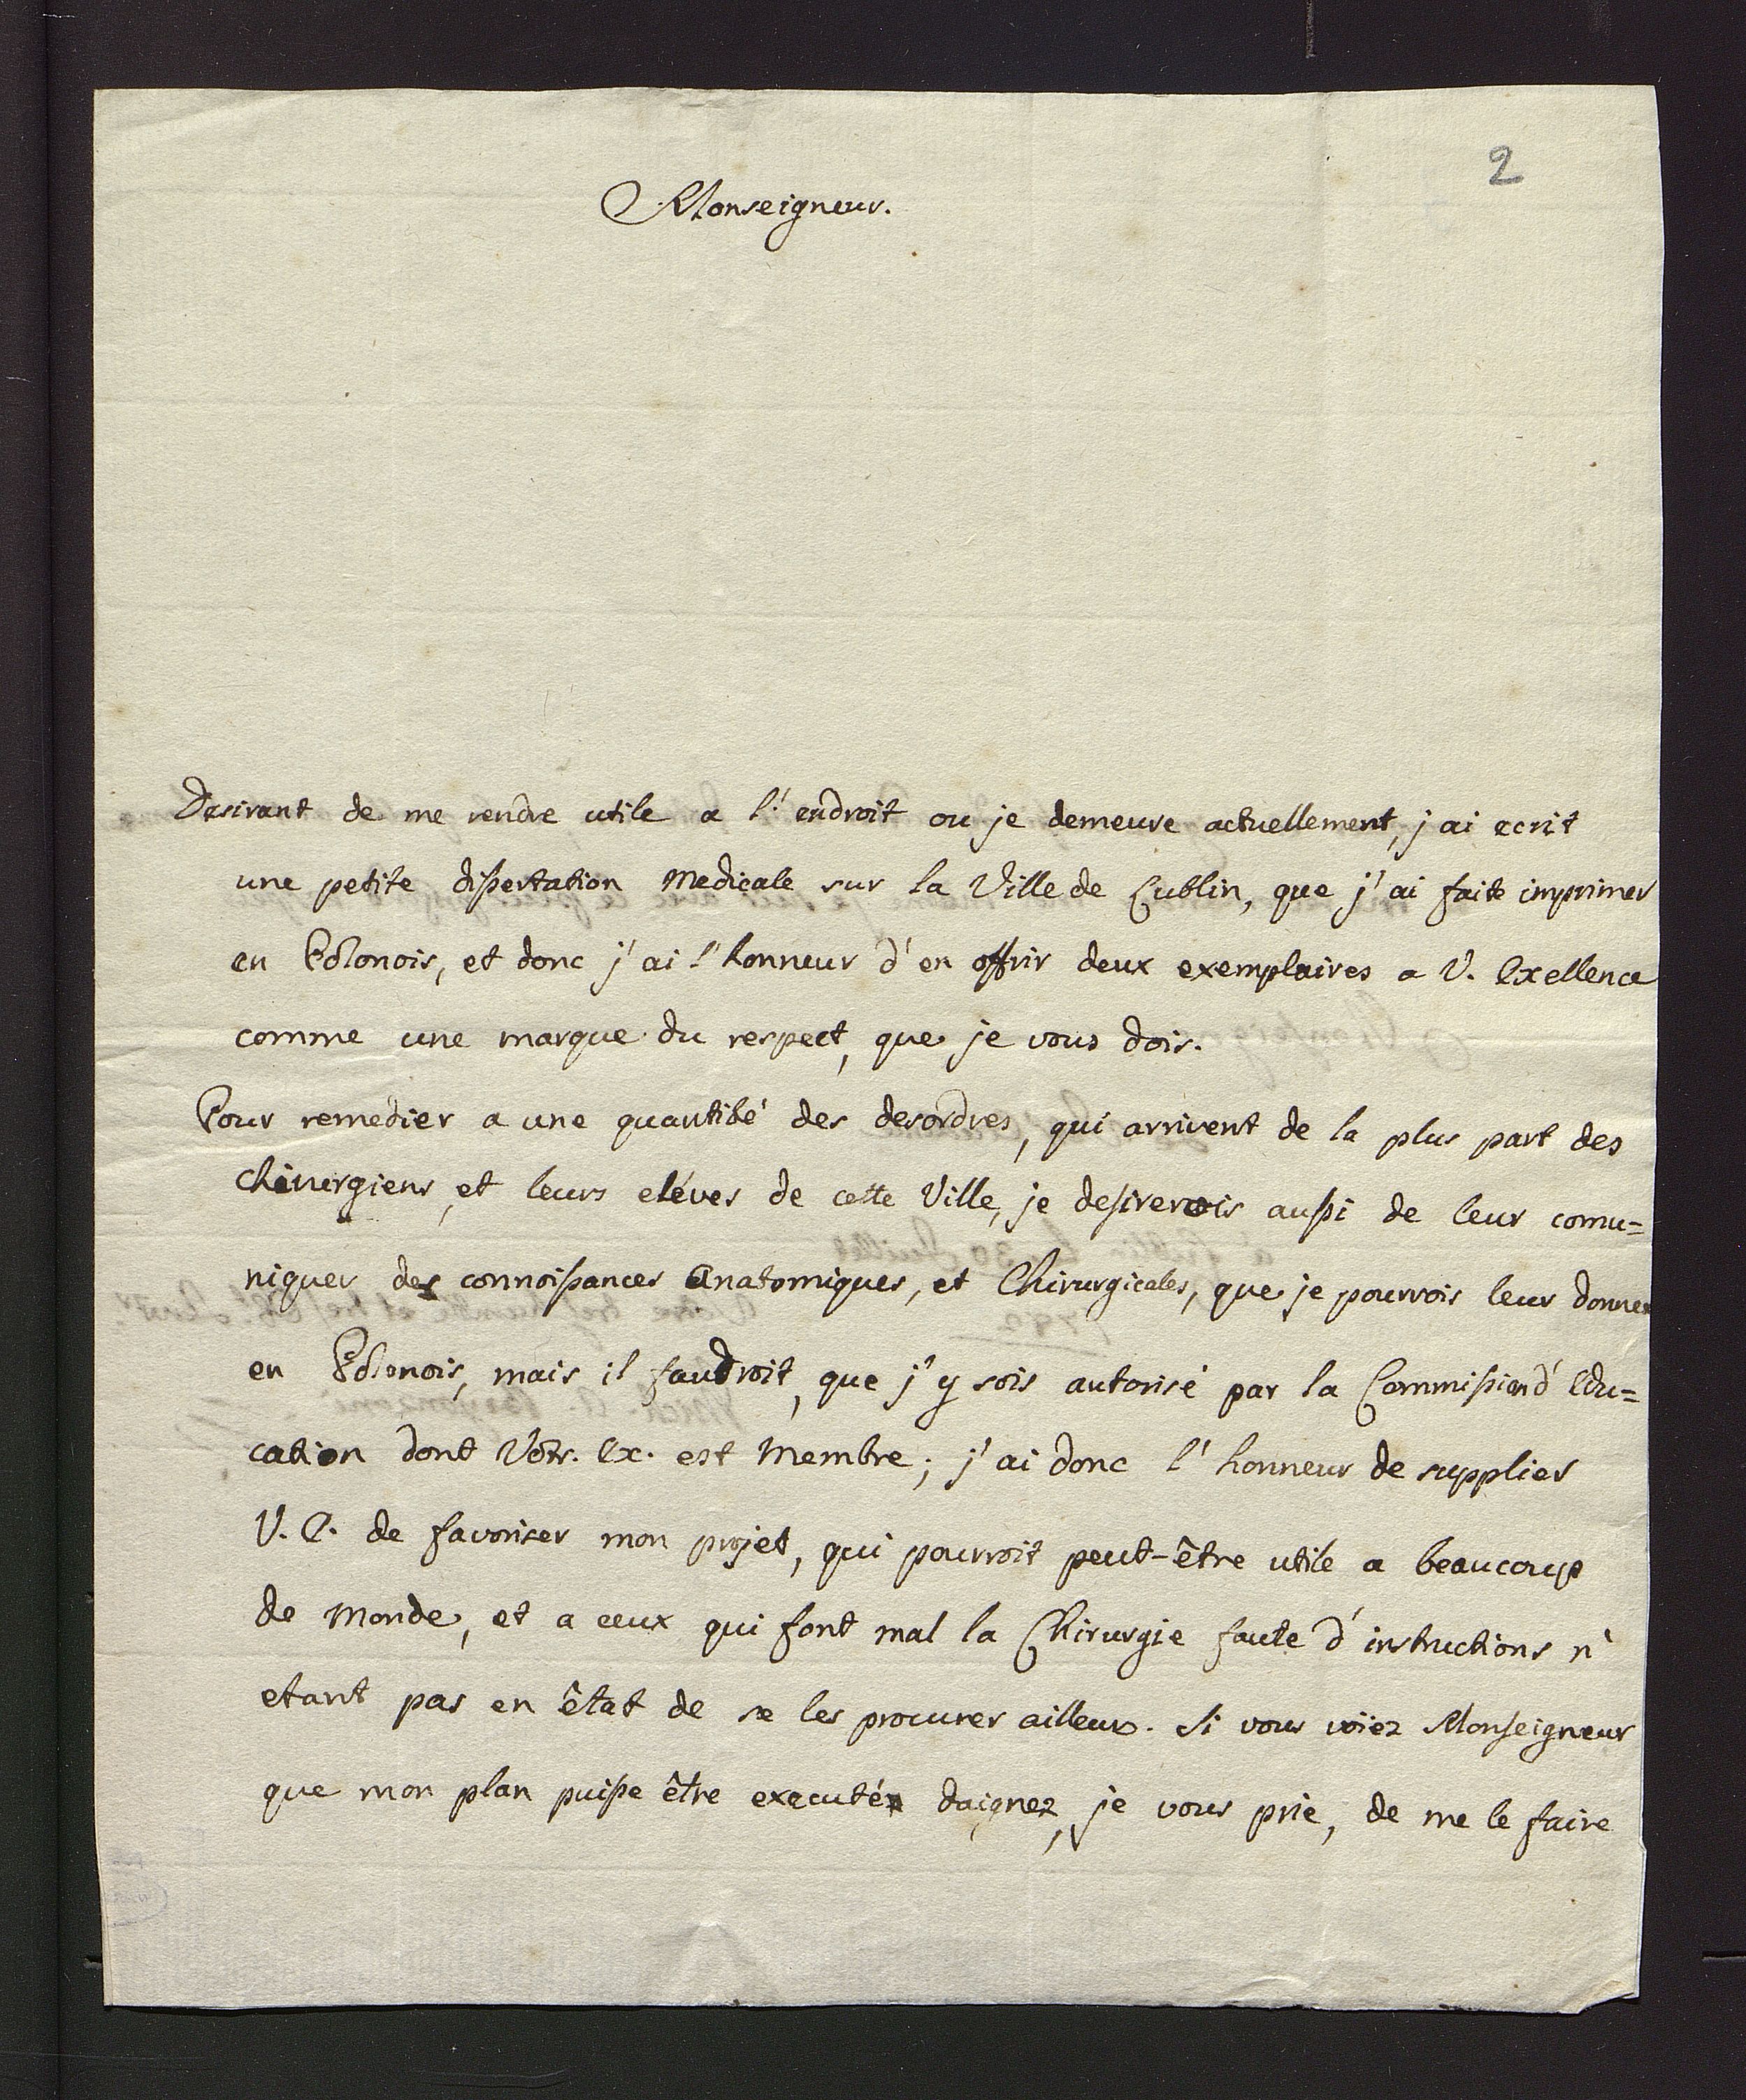 2
Monseigneur.
Desirant de me rendre utile a l'endroit ou je demeure actuellement, j'ai ecrit
une petite dissertation Medicale sur la Ville de Lublin, que j'ai faite imprimer
en Polonois, et donc j'ai l'honneur d'en offrir deux exemplaires a V. Exellence
comme une marque du respect, que je vous dois.
Pour remedier a une quantité des desordres, qui arrivent de la plus part des
Chirurgiens, et leurs eléves de cette Ville, je desirerois aussi de leur comu=
niquer des connoissances Anatomiques, et Chirurgicales, que je pourrois leur donner
en Polonois, mais il faudroit, que j'y sois autorisé par la Commission d'Edu=
cation dont Votr. Ex. est Membre; j'ai donc l'honneur de supplier
V. E. de favoriser mon projet, qui pourroit peut-être utile a beaucoup
de Monde, et a ceux qui font mal la Chirurgie faute d'instructions n'
etant pas en êtat de se les procurer ailleurs. Si vous voiez Monseigneur
que mon plan puisse être executé daignez, je vous prie, de me le faire